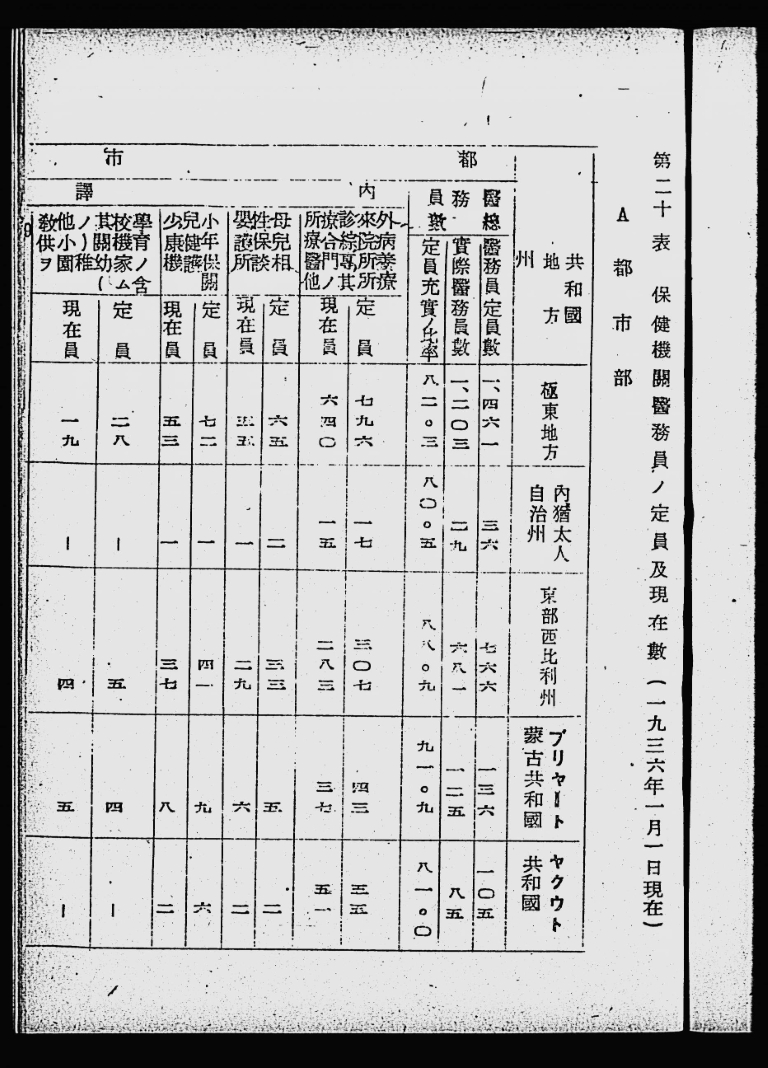 第二十表　保健機關醫務員ノ定員及現在數（一九三六年一月一日現在）
A　都市部
共和國
地方
州
極東地方
內猶太人
自治州
東部西比利州
ブリヤート
蒙古共和國
ヤクウト
共和國
都市
醫務
總員數
醫務員定員數
一、四六一
三六
七六六
一三六
一〇五
實際醫務員數
一、二〇三
二九
六八一
一二五
八五
定員充實ノ比率
八二。三
八〇。五
八八。九
九一。九
八一。〇
內譯
外病養療
來院所所
診綜專其
療合門ノ
所療醫他
定員
七九六
一七
三〇七
四三
五五
現在員
六四〇
一五
二八三
三七
五一
母兒相
性保談
嬰護所
定員
六五
二
三三
五
二
現在員
五五
一
二九
六
二
小年保關
兒健護
少康機
定員
七二
一
四一
九
六
現在員
五三
一
三七
八
二
學育ノ含
校機家ム
其關幼（
ノ）稚
他小園
敎供ヲ
定員
二八
ー
五
四
ー
現在員
一九
ー
四
五
ー